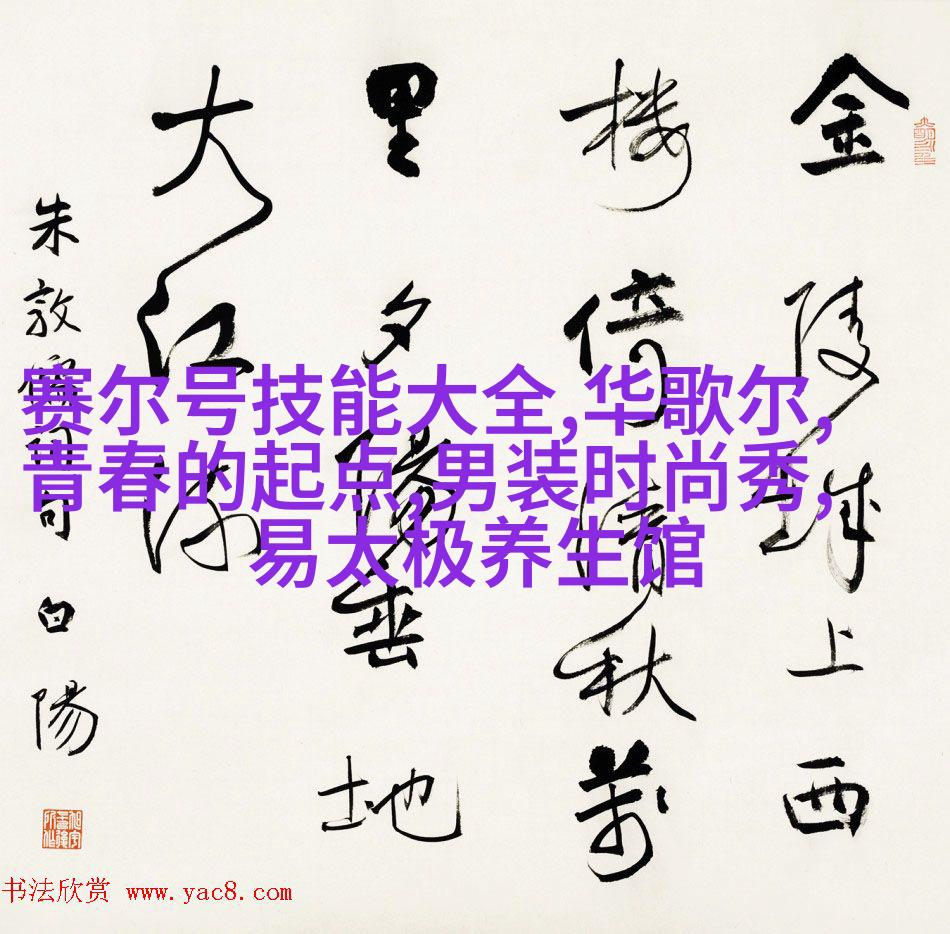 金陵城上西
楼倚清秋萬
里夕陽垂地
大江流
朱敦儒词句 白陽
赛尔号技能大全,华歌尔,
青春的起点,男装时尚秀,
易太极养生馆
书法欣赏 www.yac8.com